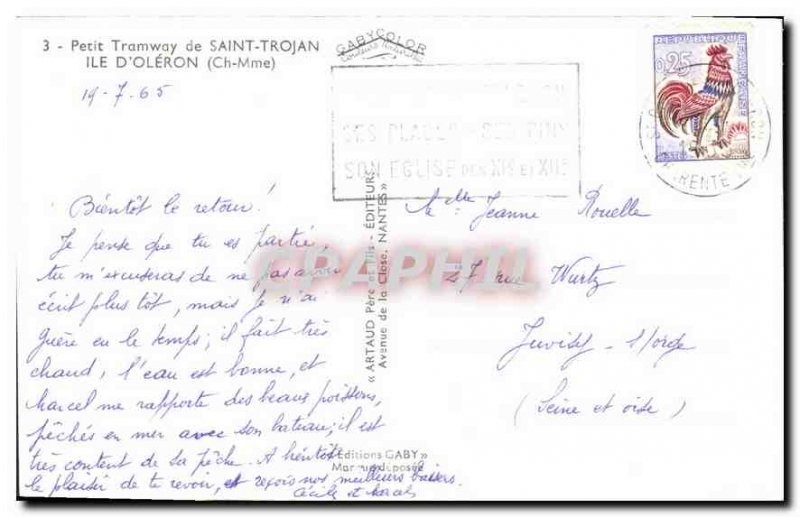 3 - Petit Tramway de SAINT-TROJAN
ILE D'OLÉRON (Ch-Mme)
GABYCOLOR
19-7-65
Bientôt le retour!
Je pense que tu es partie,
tu m'excuseras de ne pas avoir
écrit plus tôt, mais je n'ai
guère eu le temps; il fait très
chaud, l'eau est bonne, et
Marcel me rapporte des beaux poissons,
pêchés en mer avec son bateau; il est
très content de sa pêche. A bientôt
le plaisir de te revoir, et reçois nos meilleurs baisers.
Cécile et Marcel
« ARTAUD Père et Fils - ÉDITEURS
Avenue de la Close, NANTES »
« Editions GABY »
Marque déposée
SES PLAGES SES PINS
SON EGLISE DES XIe ET XIIe
REPUBLIQUE FRANÇAISE
0,25
POSTES
Melle Jeanne Rouelle
27 rue Wurtz
Juvisy - s/orge
(Seine et oise)
CPAPHIL